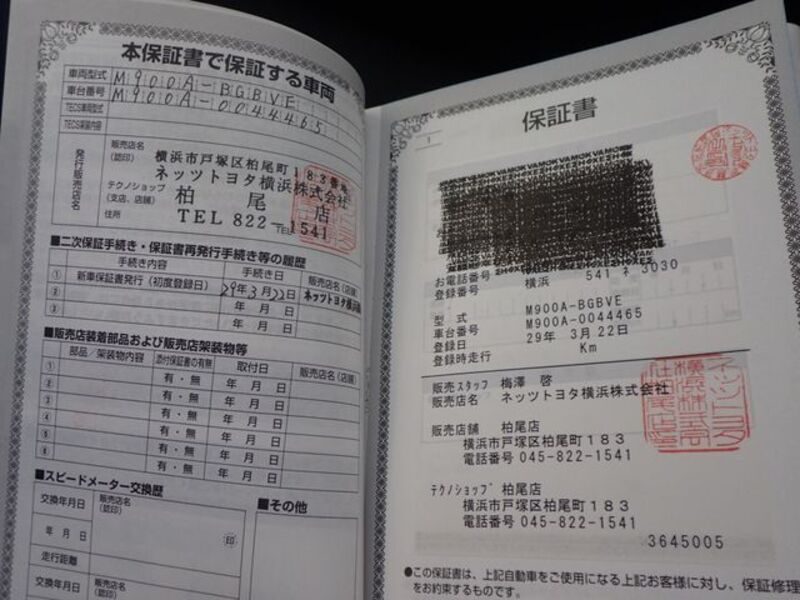 本保証書で保証する車両
車両型式 M900A-BGBVE
車台番号 M900A-0044465
TECS車両型式
TECS架装内容
発行販売店名
販売店名
(認印)
横浜市戸塚区柏尾町183番地
ネッツトヨタ横浜株式会社
テクノショップ
(支店、店舗)
柏尾店
住所
TEL 822-1541
■二次保証手続き・保証書再発行手続き等の履歴
手続き内容 手続き日 販売店名(店舗)
① 新車保証書発行(初度登録日) 29年3月22日 ネッツトヨタ横浜
② 年 月 日
③ 年 月 日
■販売店装着部品および販売店架装物等
部品/架装物内容 添付保証書の有無 取付日 販売店名(店舗)
① 有・無 年 月 日
② 有・無 年 月 日
③ 有・無 年 月 日
④ 有・無 年 月 日
⑤ 有・無 年 月 日
⑥ 有・無 年 月 日
■スピードメーター交換歴
交換年月日 販売店名
(認印)
年 月 日
印
走行距離
交換年月日 販売店名
(認印)
■その他
保証書
1
お電話番号
登録番号 横浜 541 ネ 3030
型式 M900A-BGBVE
車台番号 M900A-0044465
登録日 29年 3月22日
登録時走行 Km
販売スタッフ 梅澤 啓
販売店名 ネッツトヨタ横浜株式会社
販売店舗 柏尾店
横浜市戸塚区柏尾町183
電話番号 045-822-1541
テクノショップ 柏尾店
横浜市戸塚区柏尾町183
電話番号 045-822-1541
3645005
●この保証書は、上記自動車をご使用になる上記お客様に対し、保証修理
をお約束するものです。